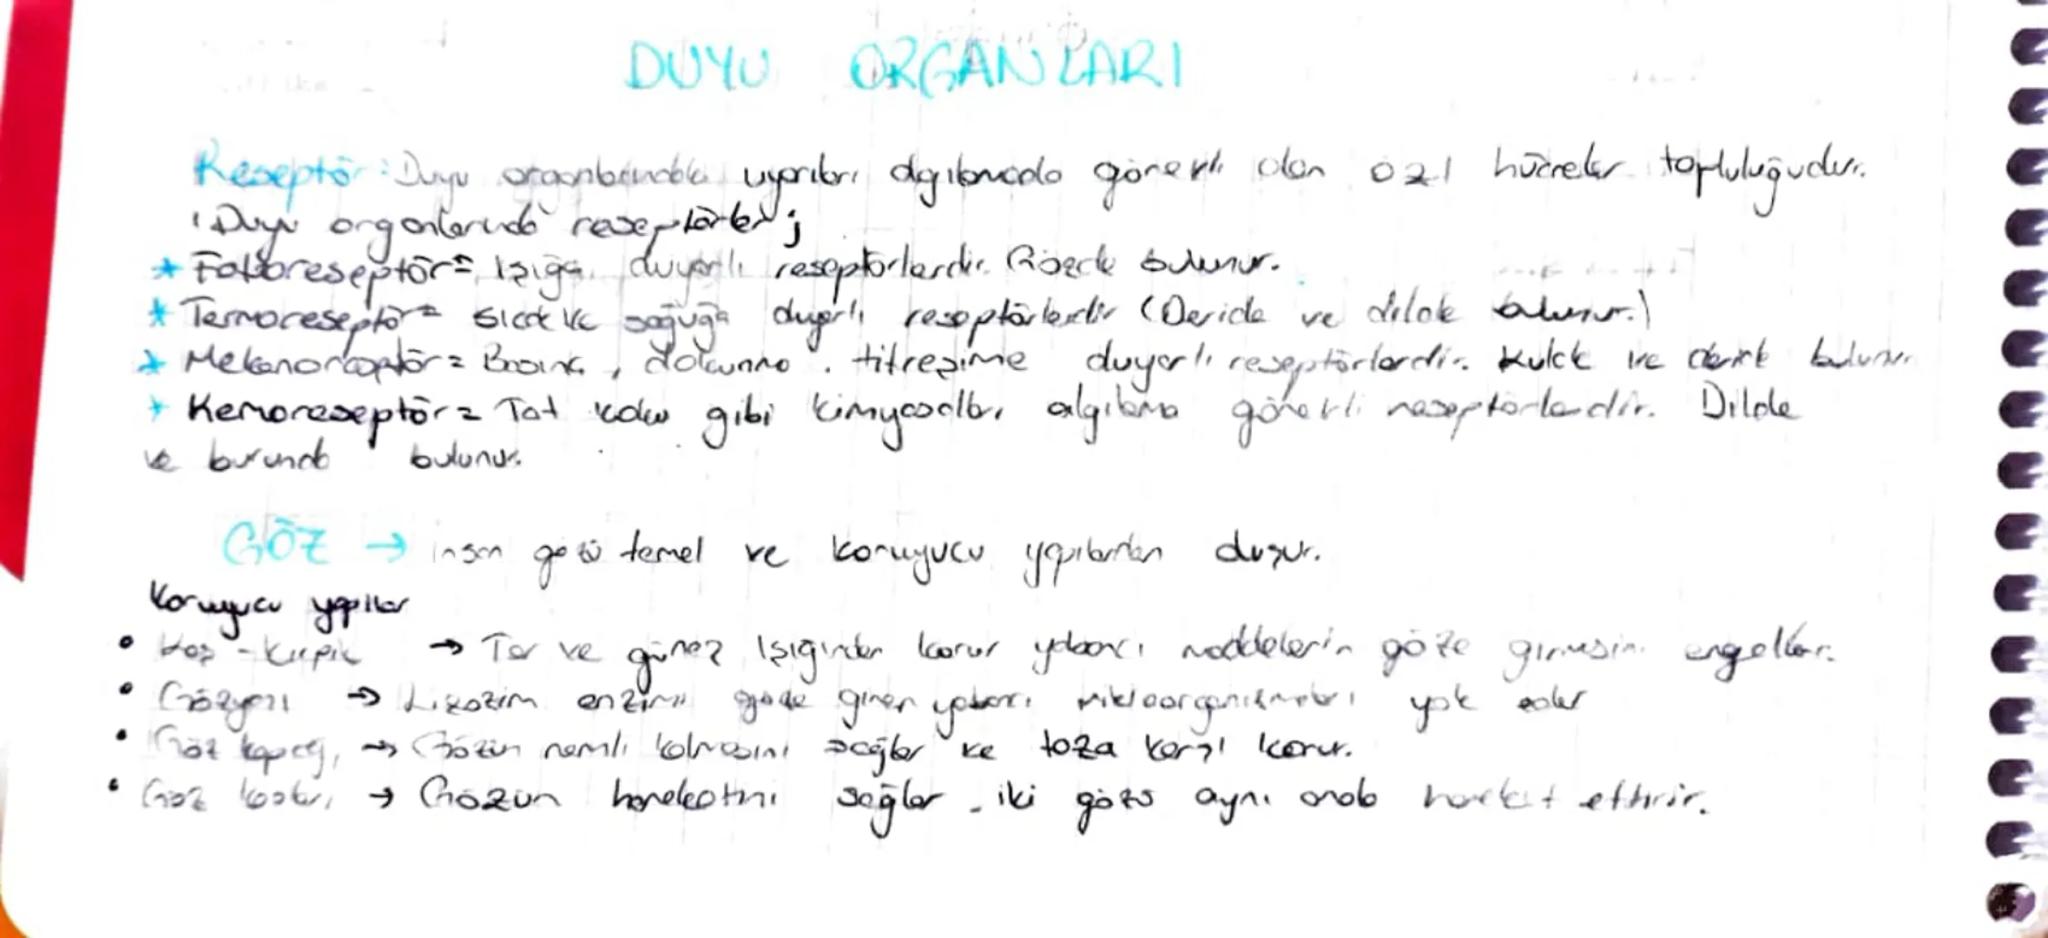 DUYU ORGANLARI
Reseptör: Duyu organlarında uyarıları algılamada görevli olan özl hücreler topluluğudur.
Duyu organlarında reseptörler;
* Fotoreseptör = Işığa duyarlı reseptörlerdir. Gözde bulunur.
* Termoreseptör = sıcak ve soğuğa duyarlı reseptörlerdir (Deride ve dilde bulunur.)
* Basınç, dokunma, titreşime duyarlı reseptörlerdir. Kulak ve deride bulunur.
* Kemoreseptör = Tat koku gibi kimyasalları algılama görevli reseptörlerdir. Dilde
ve burunda bulunur.
GÖZ → insan gözü temel ve koruyucu yapılardan
Koruyucu yapılar
• Kaş - Kirpik → Ter ve güneş ışığından korur yabancı maddelerin göze girmesini engeller.
• Gözyaşı → Lizozim enzimi göze giren yabancı mikroorganizmaları yok eder
• Göz kapağı → Gözün nemli kalmasını sağlar ve toza karşı korur.
• Göz kasları → Gözün hareketini sağlar. iki gözü aynı anda hareket ettirir.